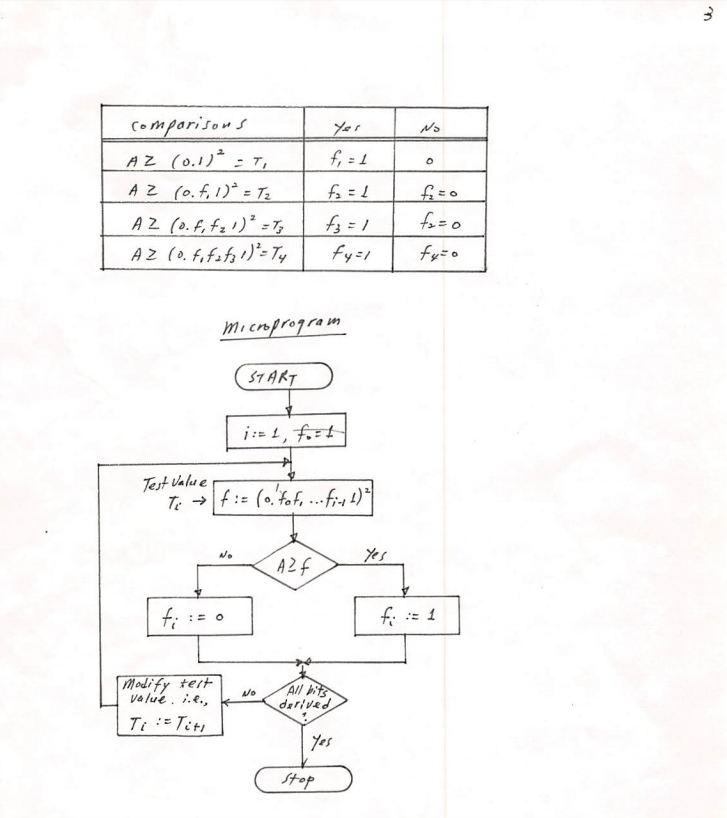 3
comparisons Yes No
A ≥ (0.1)² = T₁ f₁ = 1 0
A ≥ (0.f₁1)² = T₂ f₂ = 1 f₂ = 0
A ≥ (0.f₁f₂1)² = T₃ f₃ = 1 f₂ = 0
A ≥ (0.f₁f₂f₃1)² = T₄ f₄ = 1 f₄ = 0
Microprogram
START
i := 1, f₀ = 1
Test Value
Tᵢ → f := (0.f₀f₁ ... fᵢ₋₁ 1)²
No A ≥ f Yes
fᵢ := 0 fᵢ := 1
Modify test
value. i.e.,
Tᵢ := Tᵢ₊₁
No
All bits
derived
?
Yes
Stop